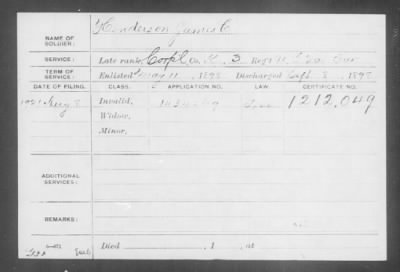 NAME OF SOLDIER: Henderson James C
SERVICE: Late rank, Corpl Co. K, 3 Reg't U.S. Vol.
TERM OF SERVICE: Enlisted May 11, 1898 Discharged Sept 8, 1898
DATE OF FILING. CLASS. APPLICATION NO. LAW. CERTIFICATE NO.
Aug 8 Invalid, 1212,049
Widow,
Minor,
ADDITIONAL SERVICES:
REMARKS:
Died , 1 , at